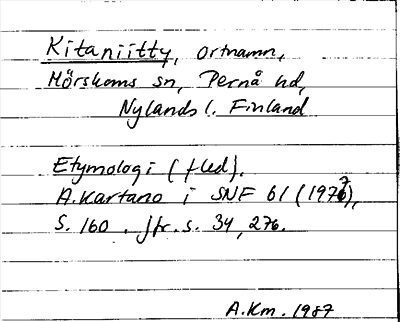 Kitaniitty, ortnamn,
Mörskoms sn, Pernå hd,
Nylands l. Finland
Etymologi (fled).
A. Kartano i SNF 61 (1977),
S. 160. Jfr. s. 34, 276.
A.Km. 1987